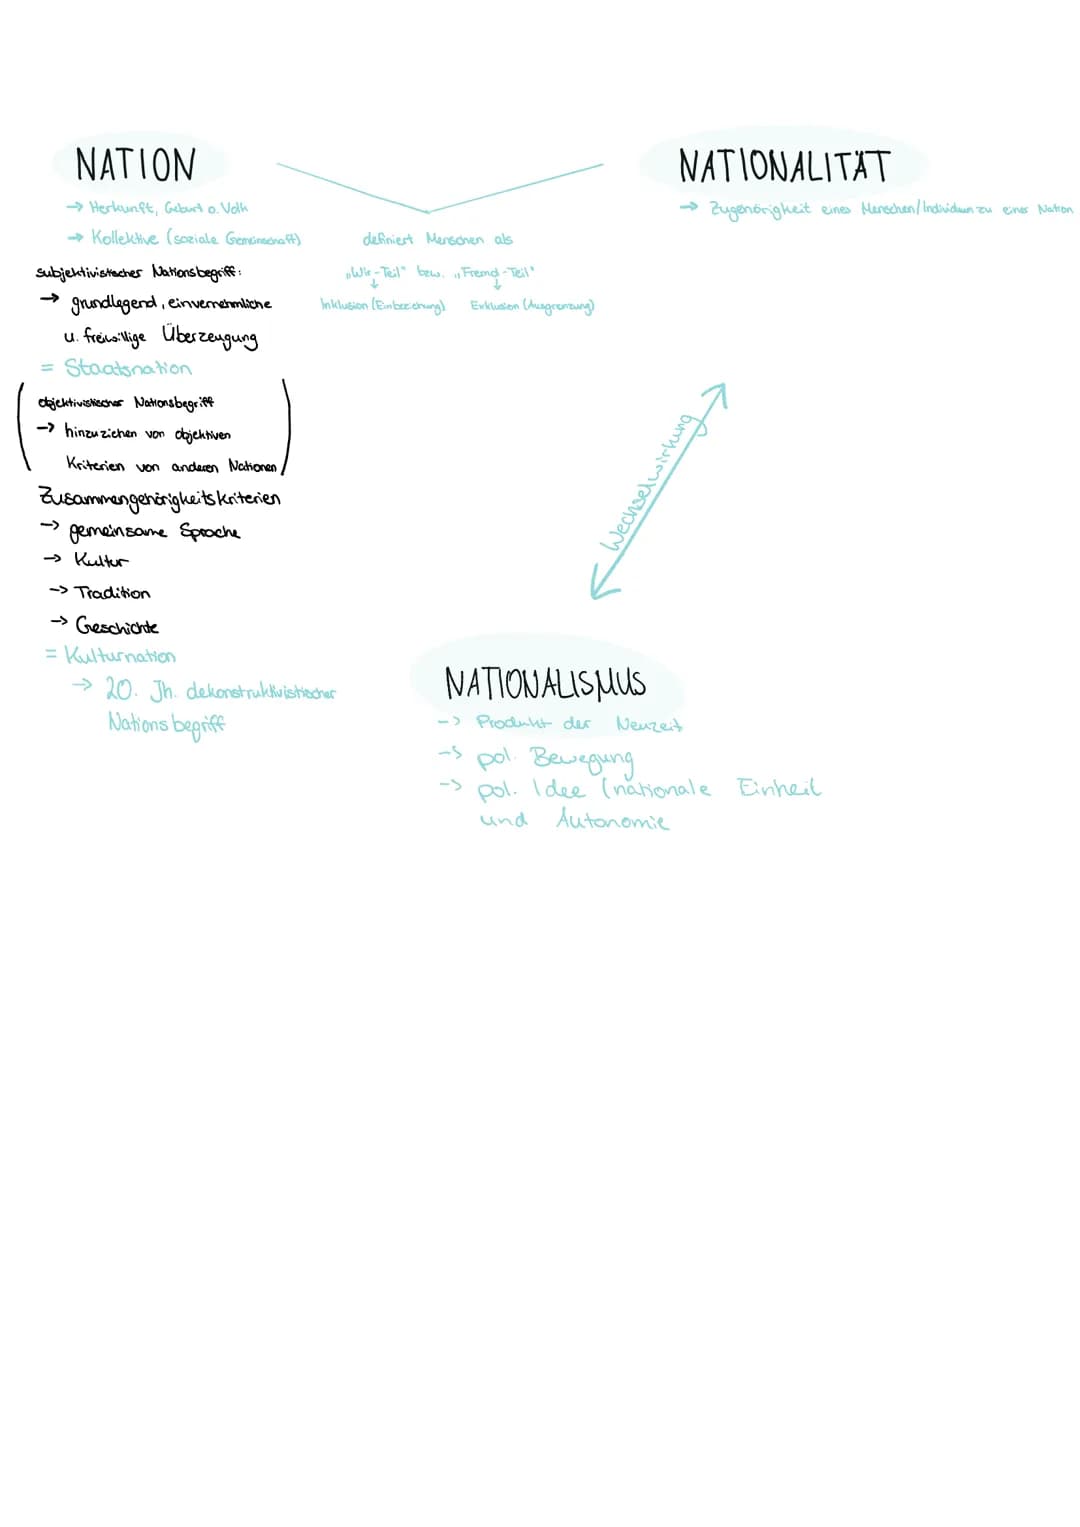 NATION
→ Herkunft, Geburt o. Volk
→ Kollektive (soziale Gemeinschaft)
subjektivistischer Nationsbegriff:
→ grundlegend, einvernehmliche
u. freiwillige Überzeugung
= Staatsnation
objektivistischer Nationsbegriff
-> hinzuziehen von objektiven
Kriterien von anderen Nationen
Zusammengehörigkeitskriterien
-> gemeinsame Sprache
-> Kultur
-> Tradition
-> Geschichte
= Kulturnation
-> 20. Jh. dekonstruktivistischer
Nationsbegriff
definiert Menschen als
„Wir-Teil" bzw. „Fremd-Teil"
Inklusion (Einbeziehung) Exklusion (Ausgrenzung)
NATIONALITÄT
→ Zugehörigkeit eines Menschen/Individuum zu einer Nation
Wechselwirkung
NATIONALISMUS
-> Produkt der Neuzeit
-> pol. Bewegung
-> pol. Idee (nationale Einheit
und Autonomie